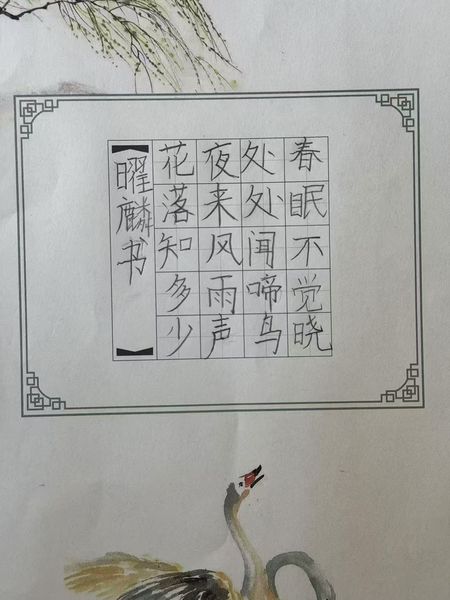 春眠不觉晓
处处闻啼鸟
夜来风雨声
花落知多少
【曜麟书】